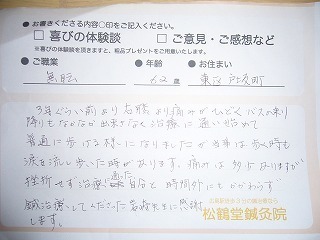 ●お書きくださる内容○印をご記入ください。
□ 喜びの体験談　□ ご意見・ご感想など
※喜びの体験談を頂きますと、粗品プレゼントをご用意いたします。
●ご職業　●年齢　●お住まい
無職　62歳　東区戸坂町
3年ぐらい前より右膝より痛みがひどくバスの乗り
降りもなかなか出来なく治療に通い始めて
普通に歩ける様になりましたが当時は歩く時も
涙を流し歩いた時が有ります。痛みは多少有りますが
挫折せず治療に通った自分と時間外にもかかわらず
鍼治療をしてくださった先生に感謝
します。
松鶴堂鍼灸院